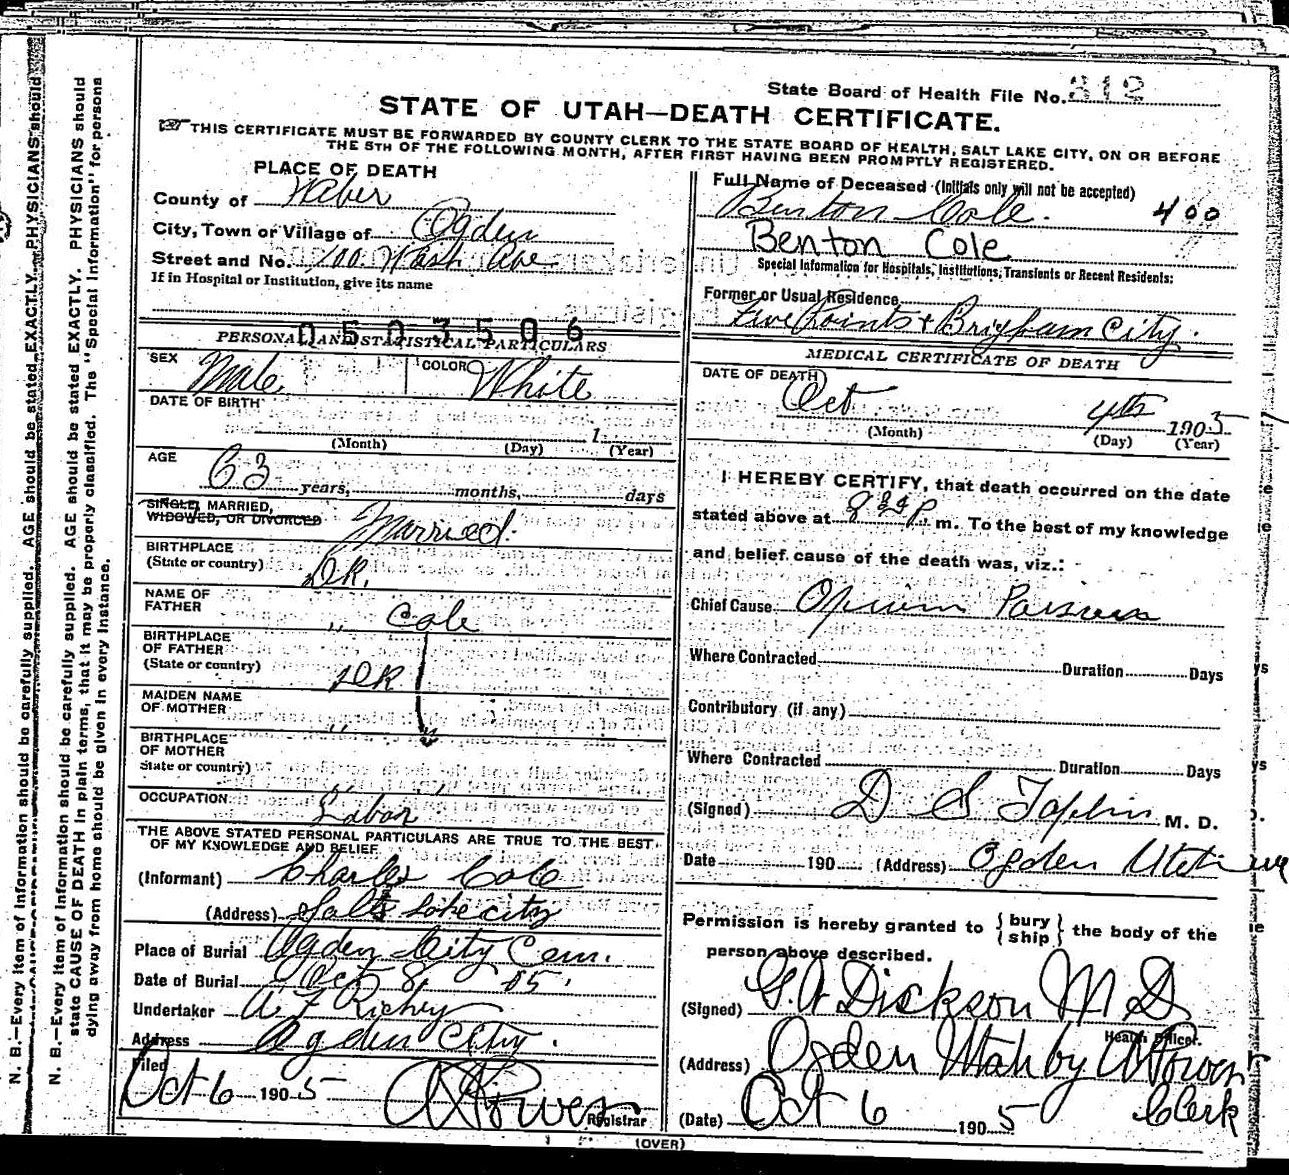 State Board of Health File No. 812
STATE OF UTAH—DEATH CERTIFICATE.
THIS CERTIFICATE MUST BE FORWARDED BY COUNTY CLERK TO THE STATE BOARD OF HEALTH, SALT LAKE CITY, ON OR BEFORE
THE 5TH OF THE FOLLOWING MONTH, AFTER FIRST HAVING BEEN PROMPTLY REGISTERED.
PLACE OF DEATH
County of Weber
City, Town or Village of Ogden
Street and No. 700 Wash Ave
If in Hospital or Institution, give its name
0503506
PERSONAL AND STATISTICAL PARTICULARS
SEX Male COLOR White
DATE OF BIRTH
1
(Month) (Day) (Year)
AGE 63 years, months, days
SINGLE, MARRIED,
WIDOWED, OR DIVORCED Married.
BIRTHPLACE
(State or country) DK.
NAME OF
FATHER " Cole
BIRTHPLACE
OF FATHER
(State or country) DK
MAIDEN NAME
OF MOTHER "
BIRTHPLACE
OF MOTHER
State or country)
OCCUPATION Labor
THE ABOVE STATED PERSONAL PARTICULARS ARE TRUE TO THE BEST
OF MY KNOWLEDGE AND BELIEF
(Informant) Charles Cole
(Address) Salt Lake City
Place of Burial Ogden City Cem.
Date of Burial Oct 8 05.
Undertaker A F Richey
Address Ogden City.
Filed
Oct 6 1905
Registrar
Full Name of Deceased (Initials only will not be accepted)
Benton Cole. 400
Benton Cole
Special Information for Hospitals, Institutions, Transients or Recent Residents:
Former or Usual Residence
Five Points & Brigham City.
MEDICAL CERTIFICATE OF DEATH
DATE OF DEATH
Oct 4th 1905
(Month) (Day) (Year)
I HEREBY CERTIFY, that death occurred on the date
stated above at P. m. To the best of my knowledge
and belief cause of the death was, viz.:
Chief Cause Opium
Where Contracted Duration Days
Contributory (if any)
Where Contracted Duration Days
(Signed) D S M. D.
Date 190 (Address) Ogden Utah
Permission is hereby granted to {bury
ship} the body of the
person above described.
(Signed) G. A Dickson M D
Health Officer.
(Address) Ogden Utah by
Clerk
(Date) Oct 6 1905
(OVER)
N. B.—Every item of information should be carefully supplied. AGE should be stated EXACTLY. PHYSICIANS should
N. B.—Every item of information should be carefully supplied. AGE should be stated EXACTLY. PHYSICIANS should
state CAUSE OF DEATH in plain terms, that it may be properly classified. The "Special Information" for persons
dying away from home should be given in every instance.